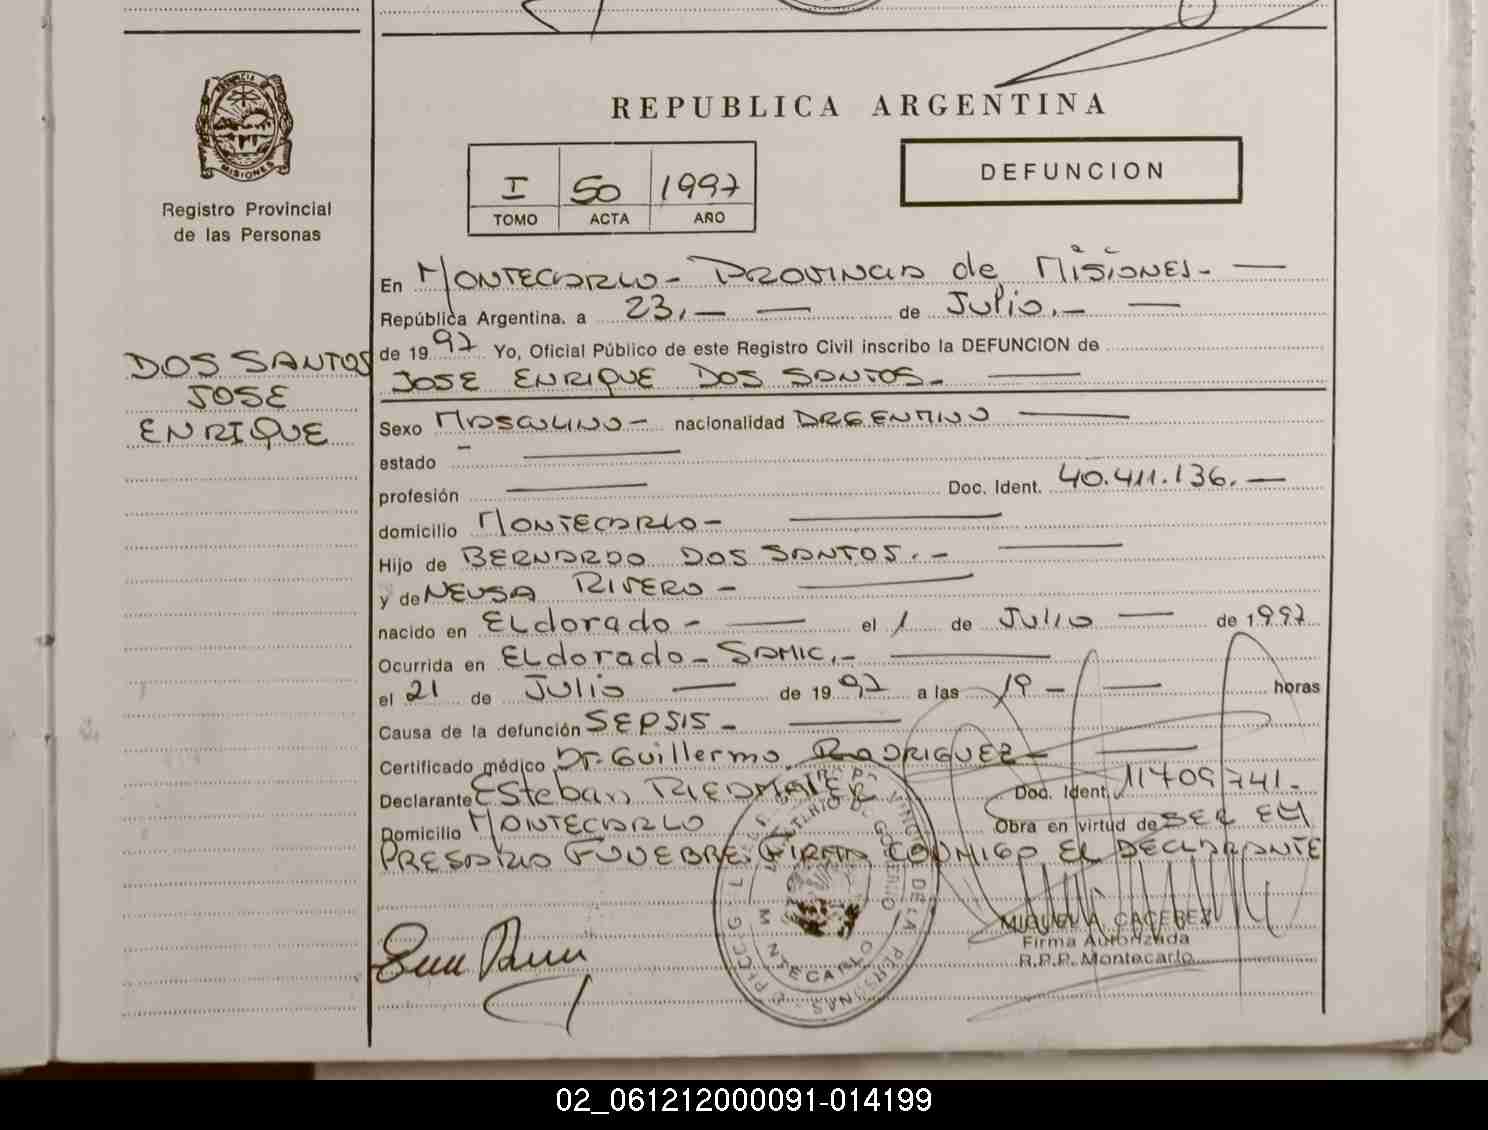 PROVINCIA DE
MISIONES
Registro Provincial
de las Personas
DOS SANTOS
JOSE
ENRIQUE
REPUBLICA ARGENTINA
I 50 1997
TOMO ACTA AÑO
DEFUNCION
En MONTECARLO - PROVINCIA de MISIONES. -
República Argentina, a 23.- de Julio.-
de 1997 Yo, Oficial Público de este Registro Civil inscribo la DEFUNCION de
JOSE ENRIQUE DOS SANTOS.
Sexo MASCULINO - nacionalidad ARGENTINO
estado -
profesión Doc. Ident. 40.411.136.-
domicilio MONTECARLO -
Hijo de BERNARDO DOS SANTOS.-
y de NEUSA RIVERO -
nacido en ELdorado - el 1 de Julio de 1997
Ocurrida en ELdorado - SAMIC.-
el 21 de Julio de 1997 a las 19 - horas
Causa de la defunción SEPSIS -
Certificado médico Dr. Guillermo RODRIGUEZ -
Declarante Esteban RIEDMAIER Doc. Ident. 11709741.-
Domicilio MONTECARLO Obra en virtud de SER EM
PRESARIO FUNEBRE. FIRMA CONMIGO EL DECLARANTE
MIGUEL A. CACEREZ
Firma Autorizada
R.P.P. Montecarlo
MONTECARLO
02_061212000091-014199